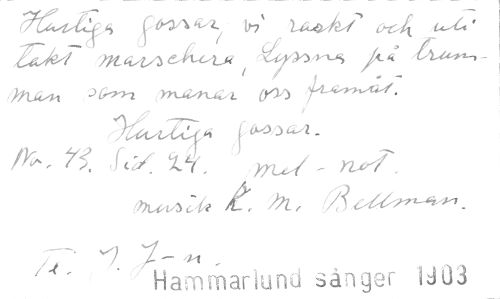 Hurtiga gossar, vi raskt och uti
takt marschera, Lyssna på trum-
man som manar oss framåt.
Hurtiga gossar.
No. 43. Sid. 24. mel-not.
musik C. M. Bellman.
Te. J. J-n.
Hammarlund sånger 1903